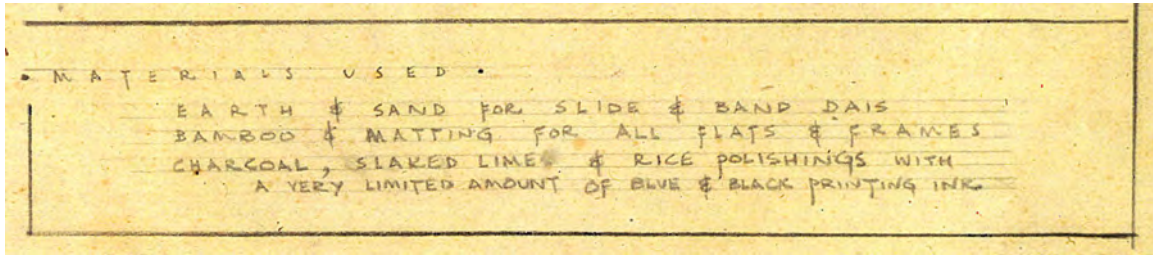 • MATERIALS USED •
EARTH & SAND FOR SLIDE & BAND DAIS
BAMBOO & MATTING FOR ALL FLATS & FRAMES
CHARCOAL, SLAKED LIME & RICE POLISHINGS WITH
A VERY LIMITED AMOUNT OF BLUE & BLACK PRINTING INK